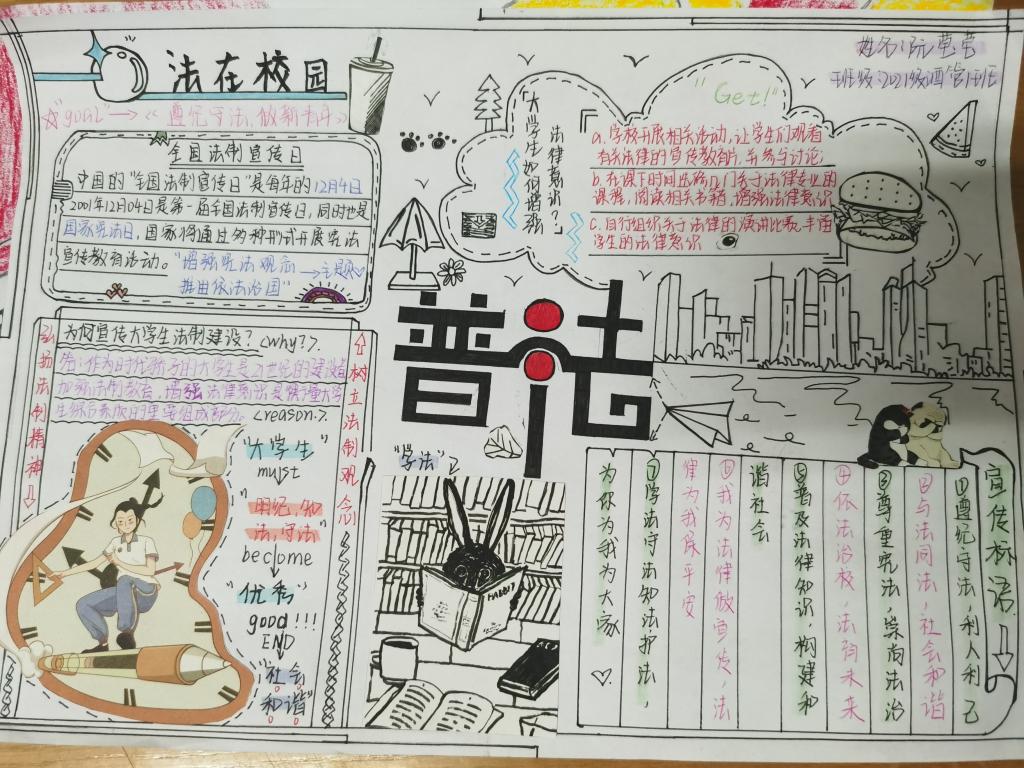 法在校园
"goal"→《遵纪守法,做新青年》
全国法制宣传日
中国的"全国法制宣传日"是每年的12月4日
2001年12月04日是第一届全国法制宣传日,同时也是
国家宪法日,国家将通过多种形式开展宪法
宣传教育活动。"增强宪法观念→主题
推进依法治国"
弘扬法制精神
为何宣传大学生法制建设?<why?>.
大学生是21世纪的建设者
加强法制教育,增强法律意识是
重要组成部分。<reason.>
树立法制观念
"大学生"
must
法,守法"
beclome
"优秀"
good!!!
END
"社会
和谐"
"Get!"
「大学生如何增强
法律意识?」
a.学校开展相关活动,让学生们观看
有关法律的宣传教育片,并参与讨论;
b.在课下时间选修几门关于法律专业的
课程,阅读相关书籍,增强法律意识
c.自行组织关于法律的演讲比赛,丰富
学生的法律意识
姓名:阮莹莹
班级:2021级酒管1班
普法
"学法"
HABBY
宣传标语
①遵纪守法,利人利己
②与法同法,社会和谐
③尊重宪法,崇尚法治
④依法治校,法韵未来
⑤普及法律知识 构建和
谐社会
⑥我为法律做宣传,法
律为我保平安
⑦学法守法知法护法,
为你为我为大家